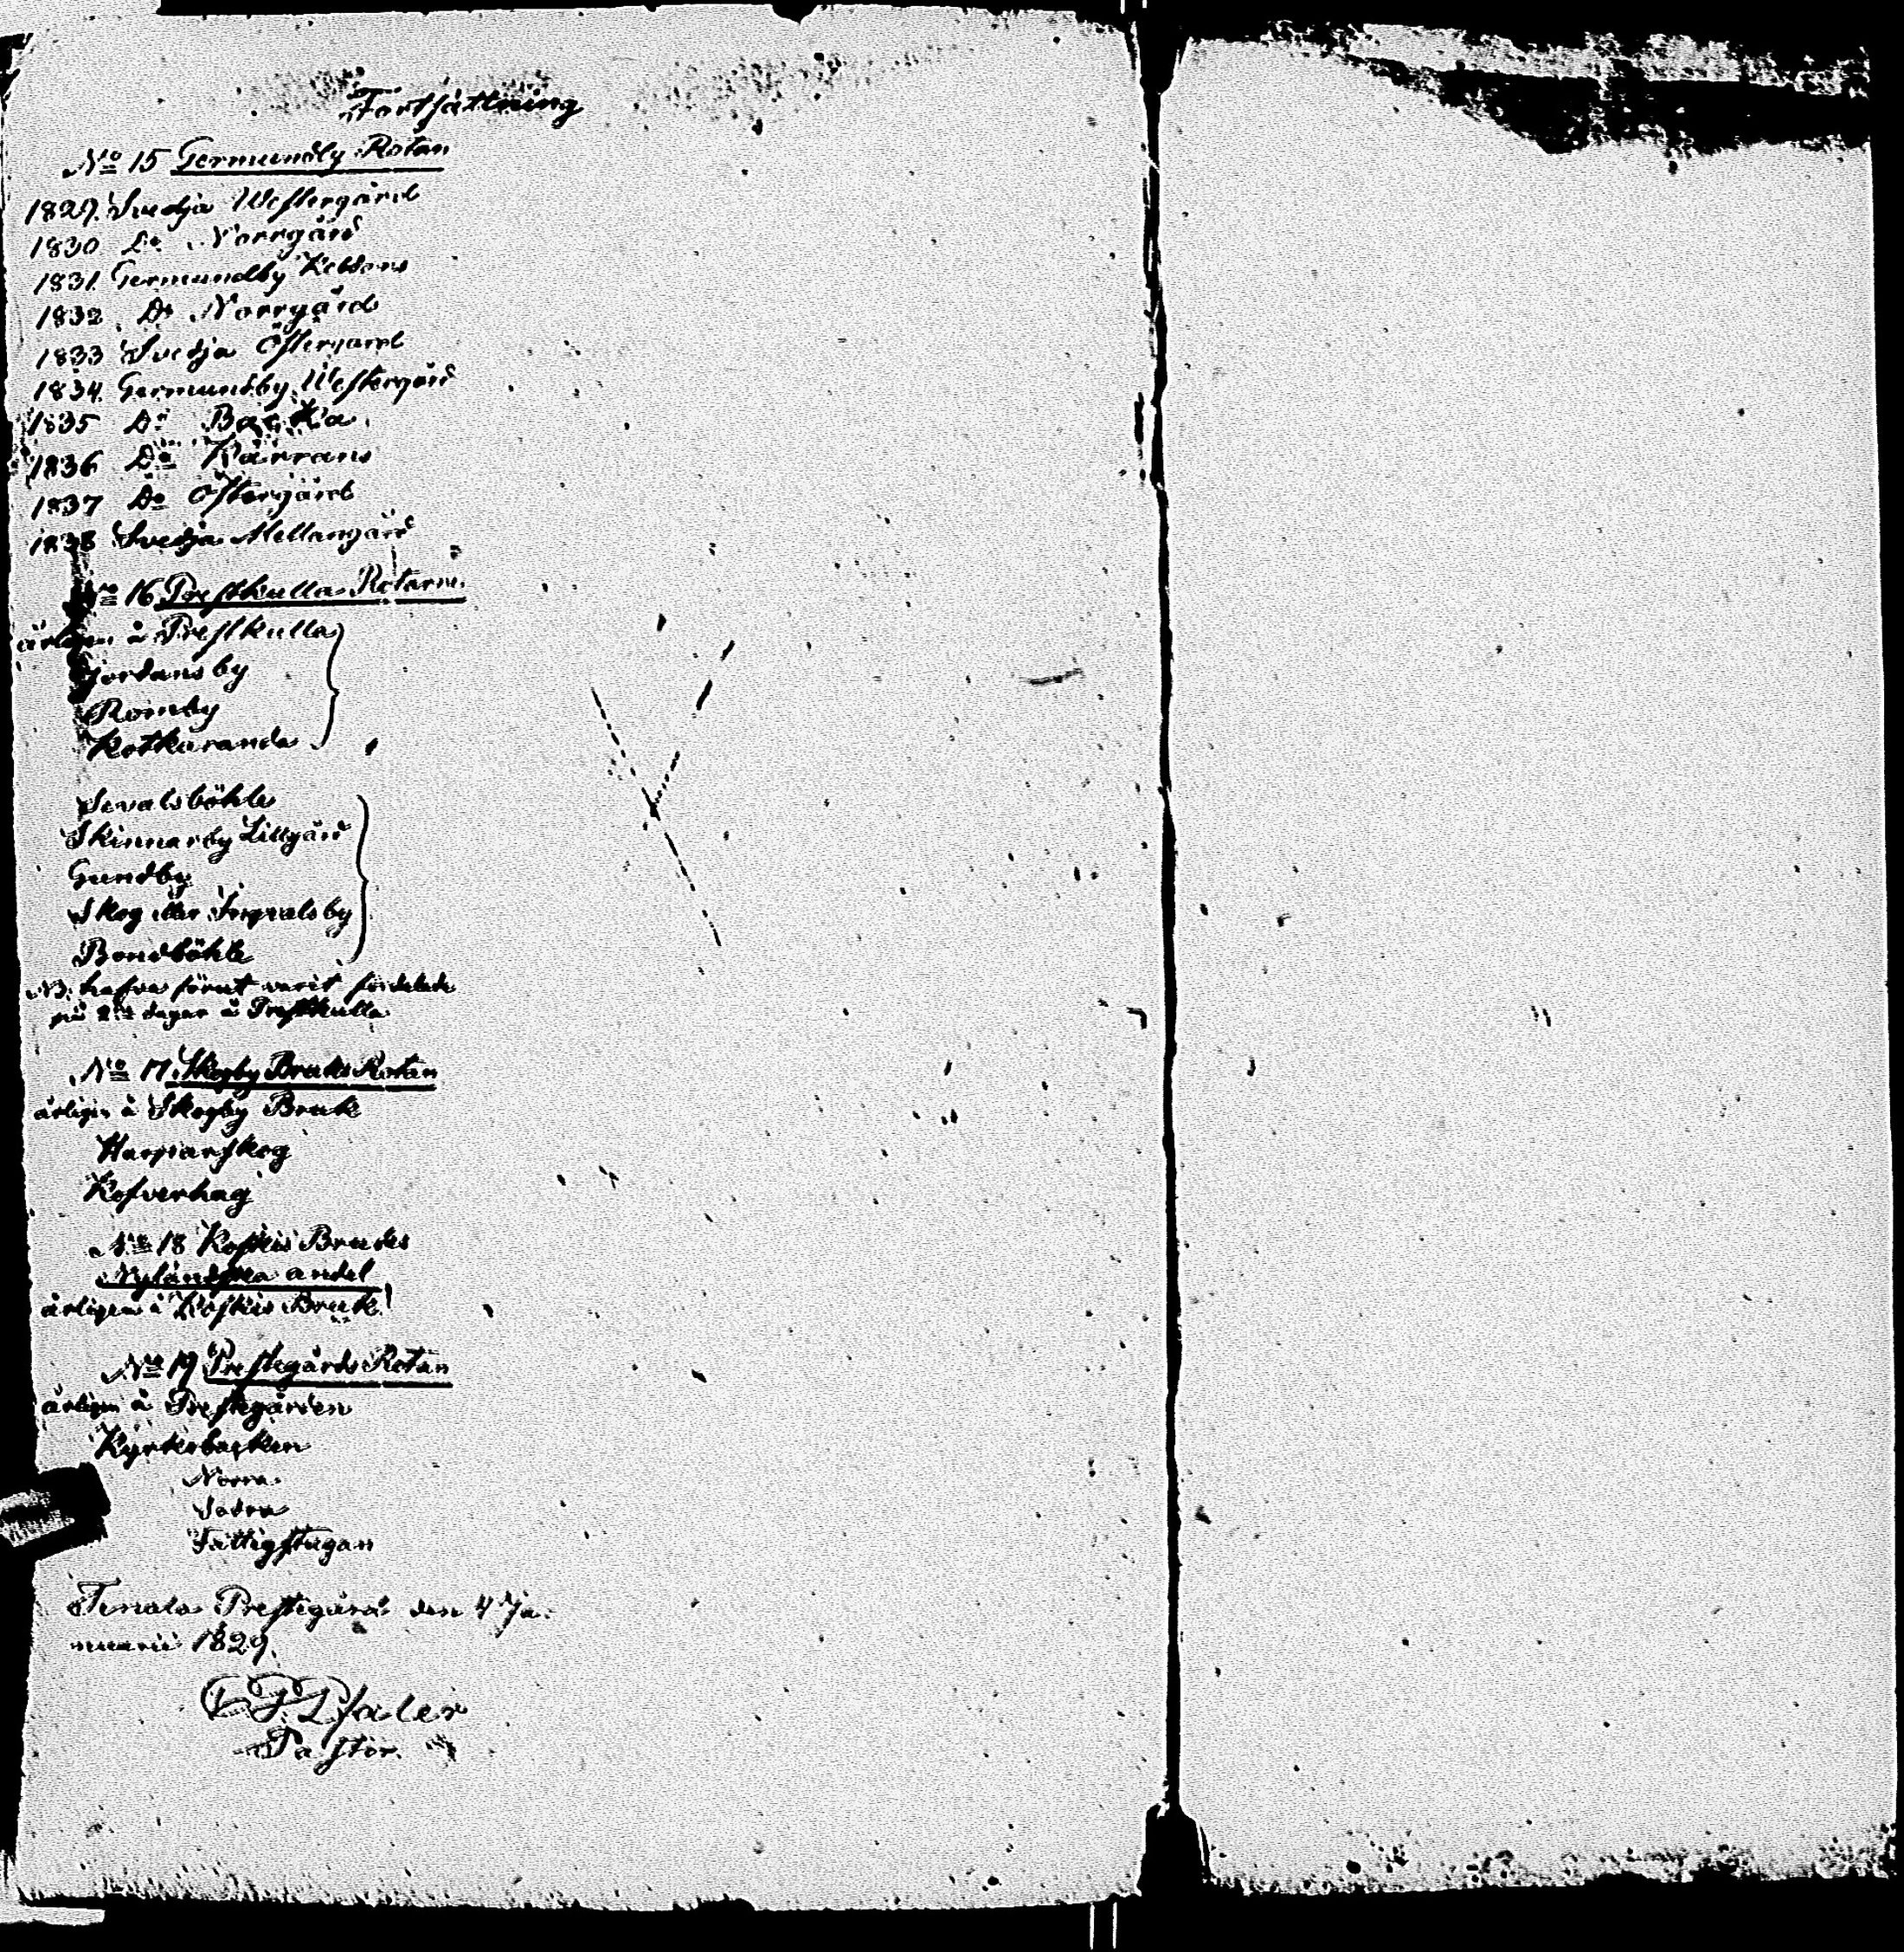 Fortsättning
No 15 Germundby Rotan
1829. Svedja Westergård
1830 Do Norrgård
1831 Germundby Kebbons
1832 Do Norrgård
1833 Svedja Östergård
1834 Germundby Westergård
1835 Do Backa
1836 Do Kärrans
1837 Do Östergård
1838 Svedja Mellangård
No 16 Prestkulla Rotarne
årligen å Prestkulla
Jordansby
Romby
Kotkaranda
Sevalsböhle
Skinnarby Lillgård
Gundby
Skog eller Ingvalsby
Bondböhle
NB. hafva förut varit fördelade
på 2ne dagar å Prestkulla
No 17 Skogby Bruks Rotan
årligen å Skogby Bruk
Harparskog
Kofverhag
No 18 Koskis Bruks
Nyländska andel
årligen å Koskis Bruk
No 19 Prestegårds Rotan
årligen å Prestegården
Kyrkobacken
Norra
Södra
Fattigstugan
Tenala Prestegård den 4 Ja-
nuarii 1829.
Pfaler
Pastor.